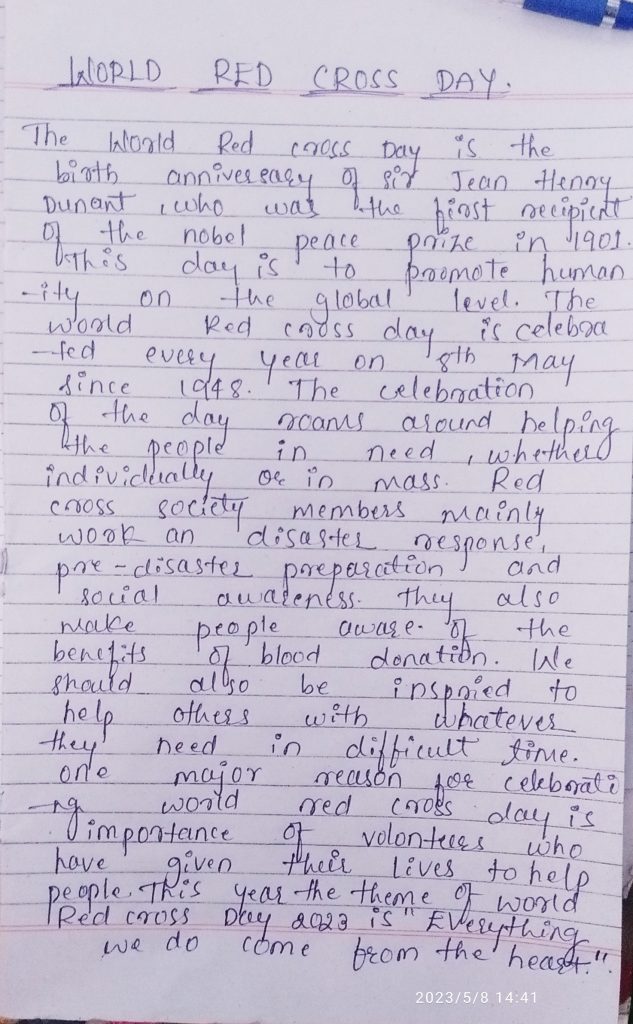 WORLD RED CROSS DAY.
The World Red cross Day is the
birth anniversary of sir Jean Henry
Dunant , who was the first recipient
of the nobel peace prize in 1901.
This day is to promote human
-ity on the global level. The
world Red cross day is celebra
-ted every year on 8th May
since 1948. The celebration
of the day roams around helping
the people in need , whether
individually or in mass. Red
cross society members mainly
work an disaster response,
pre-disaster preparation and
social awareness. They also
make people aware. of the
benefits of blood donation. We
should also be inspried to
help others with whatever
they need in difficult time.
one major reason for celebrati
-ng world red cross day is
importance of volonteers who
have given their lives to help
people. This year the theme of world
Red cross Day 2023 is "Everything
we do come from the heart".
2023/5/8 14:41